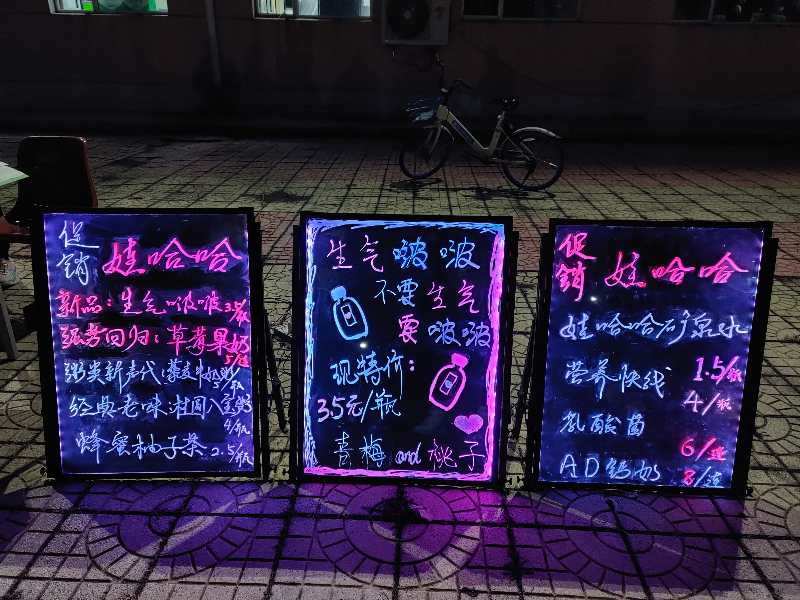 促销 娃哈哈
新品：生气啵啵
强势回归：草莓果奶
5/连
粥类新声代：藜麦牛奶粥
经典老味：桂圆八宝粥
4/瓶
蜂蜜柚子茶 2.5/瓶
生气啵啵
不要生气
要啵啵
现特价：
3.5元/瓶
青梅and桃子
促销 娃哈哈
娃哈哈矿泉水
1.5/瓶
营养快线
4/瓶
乳酸菌
6/连
AD钙奶 8/连